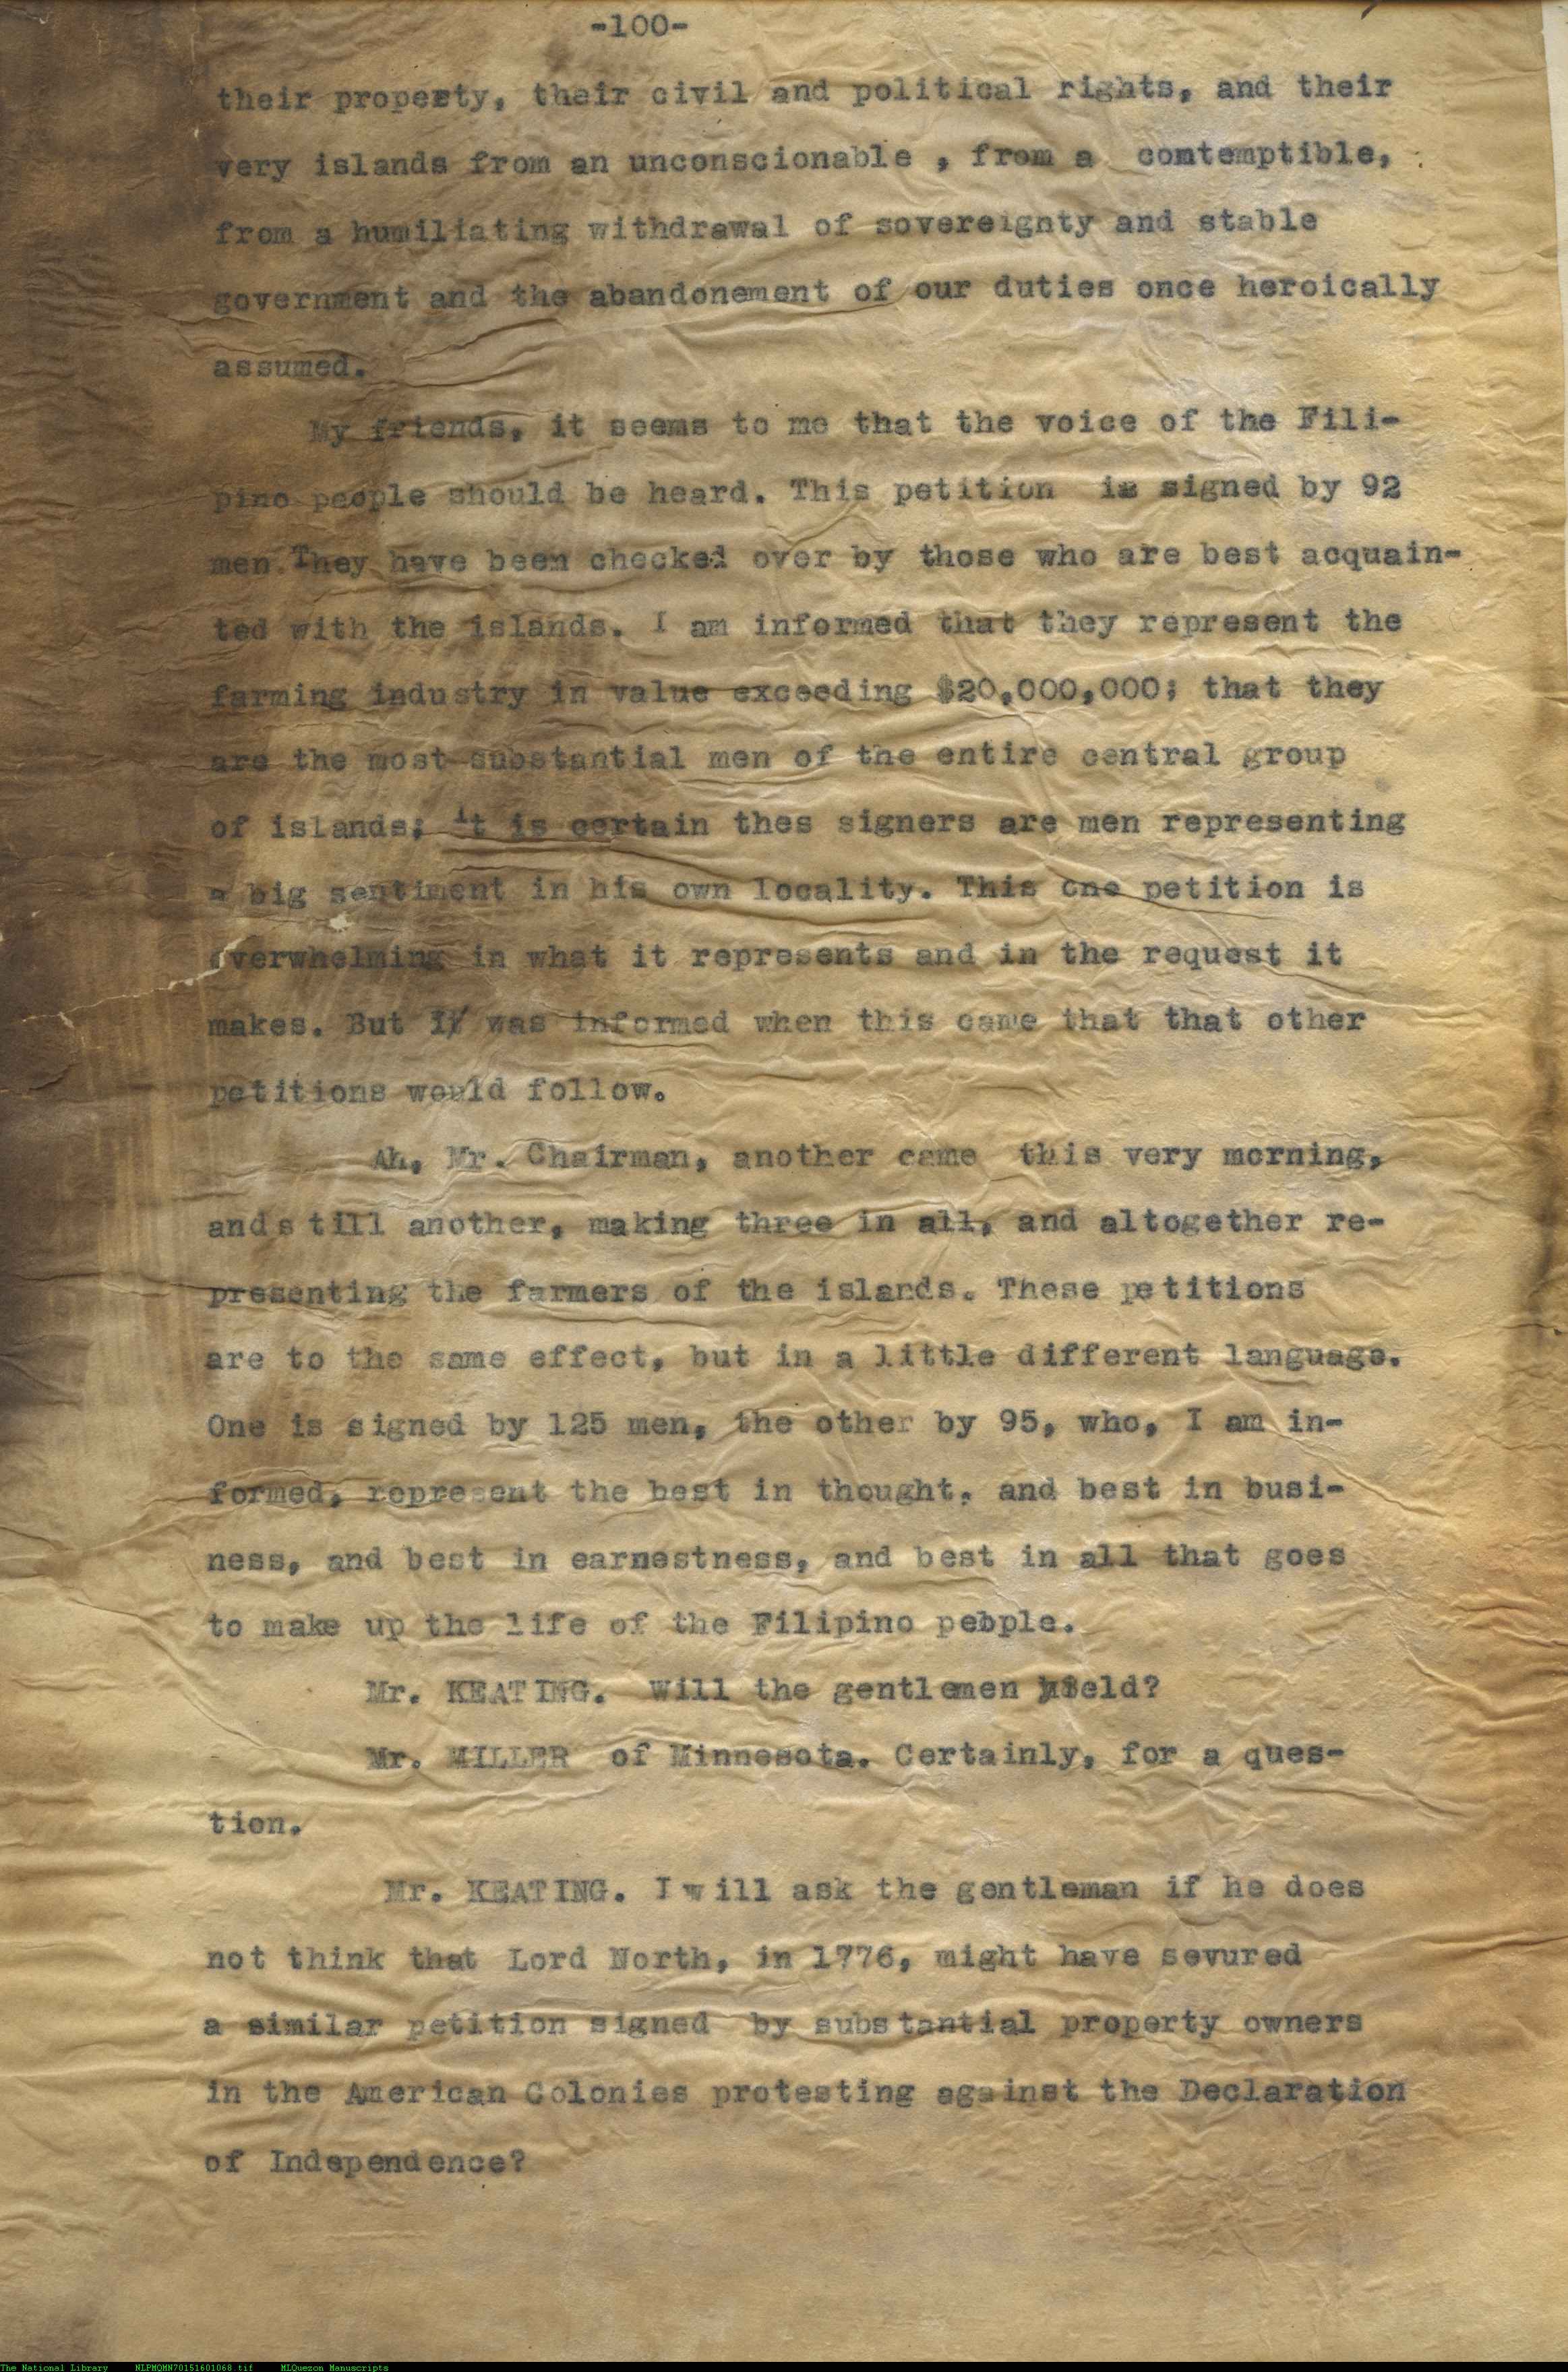 -100-
their property, their civil and political rights, and their
very islands from an unconscionable , from a contemptible,
from a humiliating withdrawal of sovereignty and stable
government and the abandonement of our duties once heroically
assumed.
My friends, it seems to me that the voice of the Fili-
pino people should be heard. This petition is signed by 92
men. They have been checked over by those who are best acquain-
ted with the islands. I am informed that they represent the
farming industry in value exceeding $20,000,000; that they
are the most substantial men of the entire central group
of islands; it is certain thes signers are men representing
a big sentiment in his own locality. This one petition is
overwhelming in what it represents and in the request it
makes. But I was informed when this came that that other
petitions would follow.
Ah, Mr. Chairman, another came this very morning,
ands till another, making three in all, and altogether re-
presenting the farmers of the islands. These petitions
are to the same effect, but in a little different language.
One is signed by 125 men, the other by 95, who, I am in-
formed, represent the best in thought, and best in busi-
ness, and best in earnestness, and best in all that goes
to make up the life of the Filipino people.
Mr. KEATING. Will the gentlemen yield?
Mr. MILLER of Minnesota. Certainly, for a ques-
tion.
Mr. KEATING. I will ask the gentleman if he does
not think that Lord North, in 1776, might have sevured
a similar petition signed by substantial property owners
in the American Colonies protesting against the Declaration
of Independence?
The National Library NLPMQMN70151601068.tif MLQuezon Manuscripts